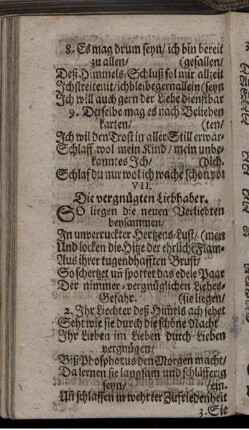 8. Es mag drum seyn/ ich bin bereit
zu allen/ (gefallen/
Deß Himmels-Schluß sol mir allzeit
Ich streite nit/ ich bleibe gern allein (seyn
Ich will auch gern der Liebe dienstbar
9. Derselbe mag es nach Belieben
karten/ (ten/
Ich wil den Trost in aller Still erwar-
Schlaff wol mein Kind/ mein unbe-
kanntes Ich/ (dich.
Schlaf du nur wol ich wache schon vor
VII.
Die vergnügten Liebhaber.
SO liegen die neuen Verliebten
beysammen/
In unverruckter Hertzens-Lust/ (men
Und locken die Hitze der ehrliche Flam-
Aus ihrer tugendhafften Brust/
So schertzet uñ spottet das edele Paar
Der nimmer-vergnüglichen Liebes-
Gefahr. (sie liegen/
2. Ihr Liechter deß Him̃els ach sehet
Seht wie sie durch die schöne Nacht
Ihr Lieben im Lieben durch Lieben
vergnügen/
Biß Phosphorus den Morgen macht/
Da lernen sie langsam und schläfferig
seyn/ (ein.
Uñ schlaffen in wehrter Zufriedenheit
3. Sie